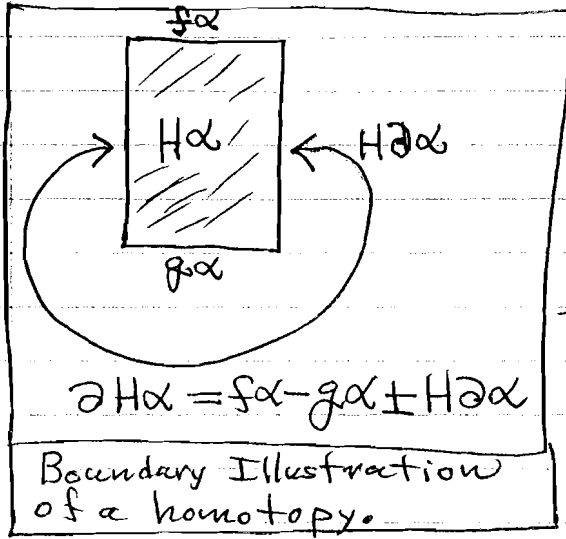 fα
Hα
H∂α
gα
∂Hα = fα - gα ± H∂α
Boundary Illustration
of a homotopy.